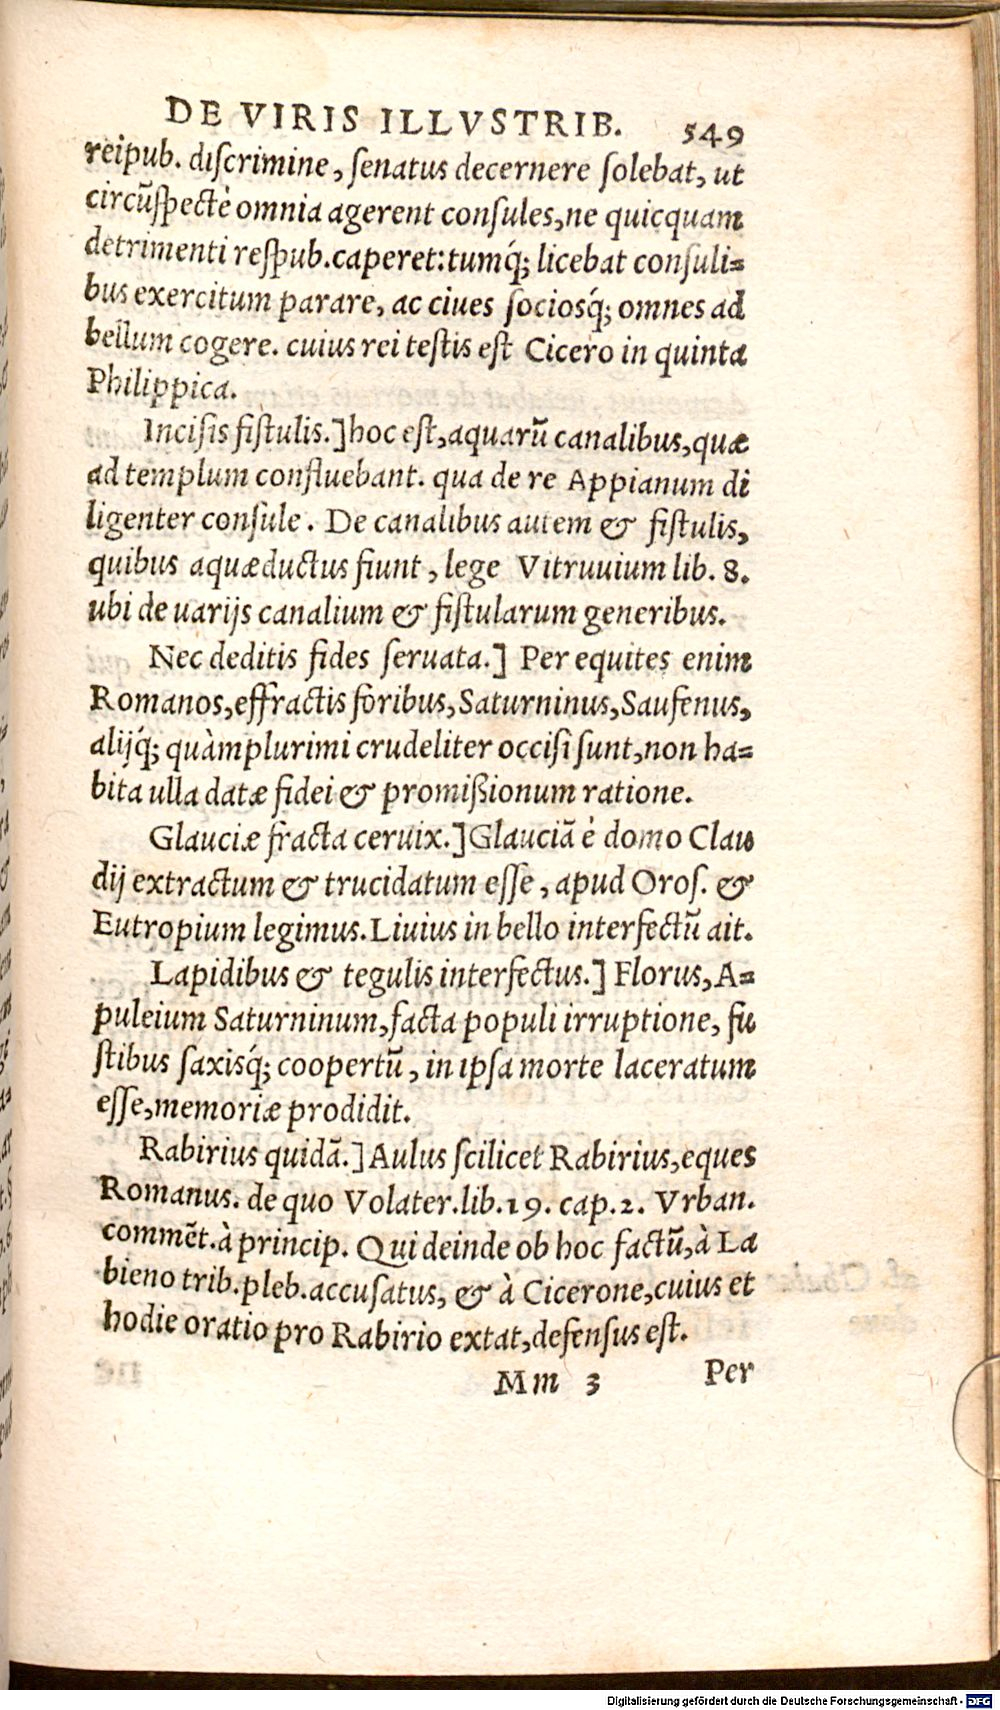 DE VIRIS ILLVSTRIB. 549
reipub. diſcrimine, ſenatus decernere ſolebat, ut
circũſpectè omnia agerent conſules, ne quicquam
detrimenti reſpub. caperet: tumq́; licebat conſuli-
bus exercitum parare, ac ciues ſociosq́; omnes ad
bellum cogere. cuius rei teſtis eſt Cicero in quinta
Philippica.
Inciſis fiſtulis.] hoc eſt, aquarũ canalibus, quæ
ad templum confluebant. qua de re Appianum di
ligenter conſule. De canalibus autem & fiſtulis,
quibus aquæductus fiunt, lege Vitruuium lib. 8.
ubi de uarijs canalium & fiſtularum generibus.
Nec deditis fides ſeruata.] Per equites enim
Romanos, effractis foribus, Saturninus, Saufenus,
alijq́; quàmplurimi crudeliter occiſi ſunt, non ha-
bita ulla datæ fidei & promißionum ratione.
Glauciæ fracta ceruix.] Glauciã è domo Clau
dij extractum & trucidatum eſſe, apud Oroſ. &
Eutropium legimus. Liuius in bello interfectũ ait.
Lapidibus & tegulis interfectus.] Florus, A-
puleium Saturninum, facta populi irruptione, fu
ſtibus ſaxisq́; coopertũ, in ipſa morte laceratum
eſſe, memoriæ prodidit.
Rabirius quidã.] Aulus ſcilicet Rabirius, eques
Romanus. de quo Volater. lib. 19. cap. 2. Vrban.
commẽt. à princip. Qui deinde ob hoc factũ, à La
bieno trib. pleb. accuſatus, & à Cicerone, cuius et
hodie oratio pro Rabirio extat, defenſus eſt.
Mm 3 Per
Digitalisierung gefördert durch die Deutsche Forschungsgemeinschaft - DFG